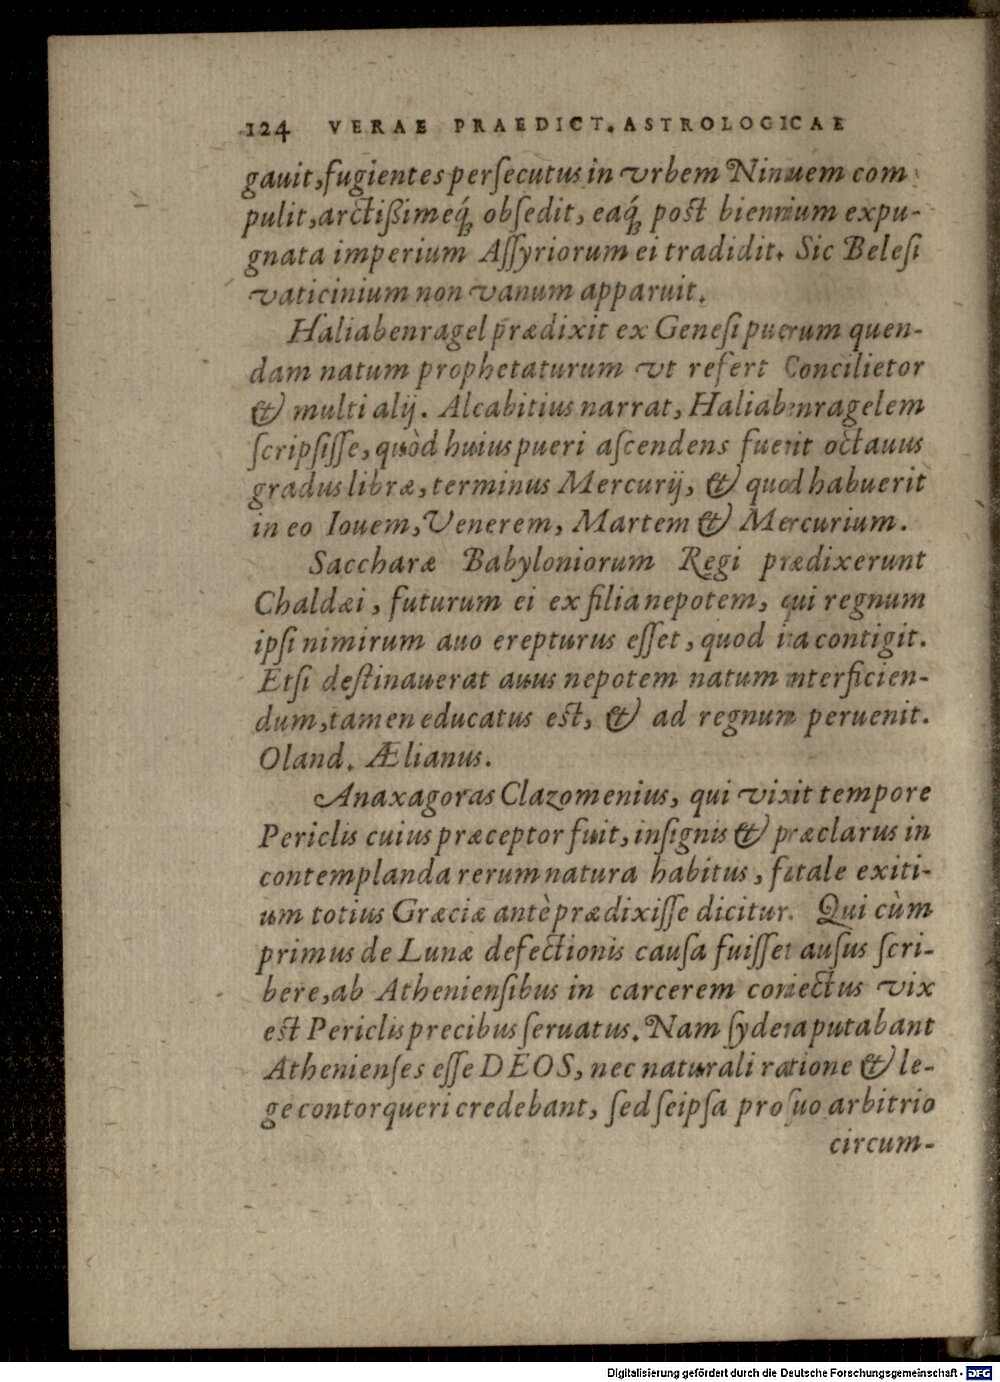 124 VERAE PRAEDICT. ASTROLOGICAE
gauit, fugientes perſecutus in vrbem Ninuem com
pulit, arctißimeq́ꝫ obſedit, eaq́ꝫ poſt biennium expu-
gnata imperium Aſſyriorum ei tradidit. Sic Beleſi
vaticinium non vanum apparuit.
Haliabenragel prædixit ex Geneſi puerum quen-
dam natum prophetaturum vt refert Concilietor
& multi alij. Alcabitius narrat, Haliabenragelem
ſcripſiſſe, quòd huius pueri aſcendens fuerit octauus
gradus libræ, terminus Mercurij, & quod habuerit
in eo Iouem, Venerem, Martem & Mercurium.
Saccharæ Babyloniorum Regi prædixerunt
Chaldæi, futurum ei ex filia nepotem, qui regnum
ipſi nimirum auo erepturus eſſet, quod ita contigit.
Etſi deſtinauerat auus nepotem natum interficien-
dum, tamen educatus eſt, & ad regnum peruenit.
Oland. Ælianus.
Anaxagoras Clazomenius, qui vixit tempore
Periclis cuius præceptor fuit, inſignis & præclarus in
contemplanda rerum natura habitus, fatale exiti-
um totius Græciæ antè prædixiſſe dicitur. Qui cùm
primus de Lunæ defectionis cauſa fuiſſet auſus ſcri-
bere, ab Athenienſibus in carcerem coniectus vix
eſt Periclis precibus ſeruatus. Nam ſydera putabant
Athenienſes eſſe DEOS, nec naturali ratione & le-
ge contorqueri credebant, ſed ſeipſa pro ſuo arbitrio
circum-
Digitalisierung gefördert durch die Deutsche Forschungsgemeinschaft - DFG